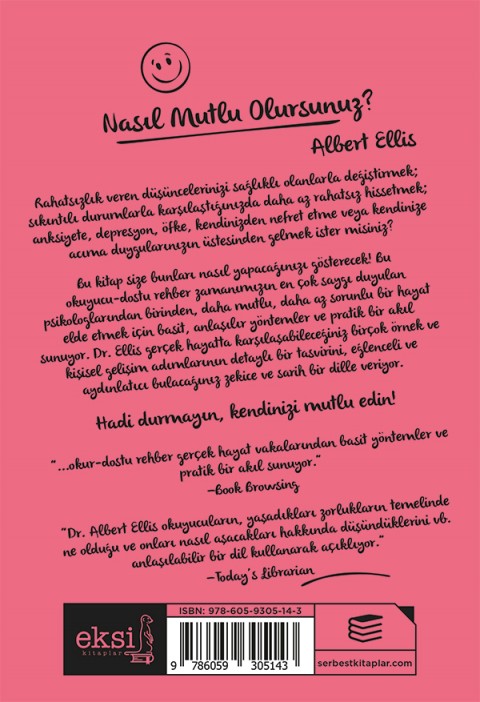 Nasıl Mutlu Olursunuz?
Albert Ellis
Rahatsızlık veren düşüncelerinizi sağlıklı olanlarla değiştirmek;
sıkıntılı durumlarla karşılaştığınızda daha az rahatsız hissetmek;
anksiyete, depresyon, öfke, kendinizden nefret etme veya kendinize
acıma duygularınızın üstesinden gelmek ister misiniz?
Bu kitap size bunları nasıl yapacağınızı gösterecek! Bu
okuyucu-dostu rehber zamanımızın en çok saygı duyulan
psikologlarından birinden, daha mutlu, daha az sorunlu bir hayat
elde etmek için basit, anlaşılır yöntemler ve pratik bir akıl
sunuyor. Dr. Ellis gerçek hayatta karşılaşabileceğiniz birçok örnek ve
kişisel gelişim adımlarının detaylı bir tasvirini, eğlenceli ve
aydınlatıcı bulacağınız zekice ve sarih bir dille veriyor.
Hadi durmayın, kendinizi mutlu edin!
"...okur-dostu rehber gerçek hayat vakalarından basit yöntemler ve
pratik bir akıl sunuyor."
–Book Browsing
"Dr. Albert Ellis okuyucuların, yaşadıkları zorlukların temelinde
ne olduğu ve onları nasıl aşacakları hakkında düşündüklerini vb.
anlaşılabilir bir dil kullanarak açıklıyor."
–Today's Librarian
eksi
kitaplar
ISBN: 978-605-9305-14-3
9 786059 305143
serbestkitaplar.com